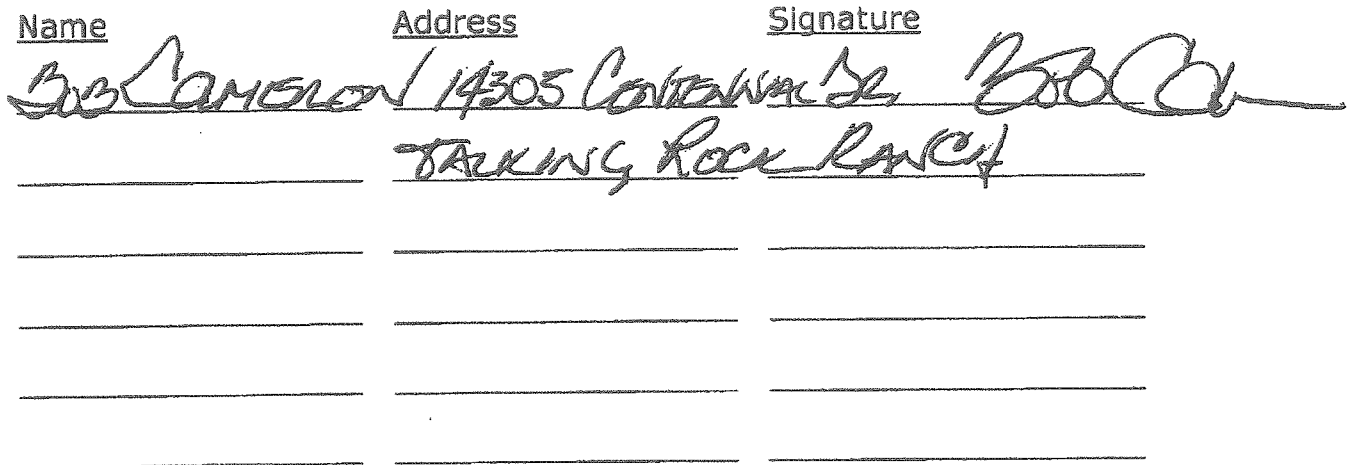 Name Address Signature
Bob Cameron 14305 Centennial Dr, Bob C
Talking Rock Ranch